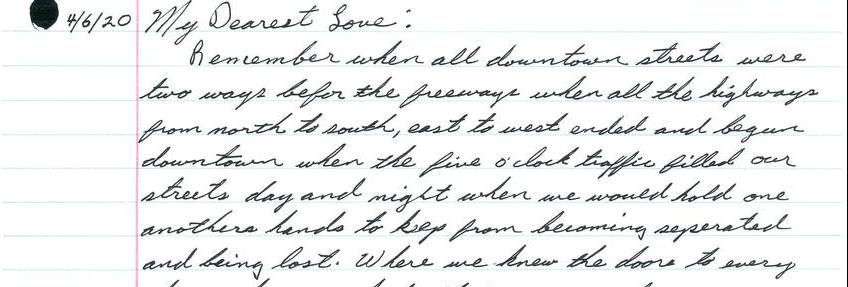 4/6/20 My Dearest Love:
Remember when all downtown streets were
two ways befor the freeways when all the highways
from north to south, east to west ended and begun
downtown when the five o'clock traffic filled our
streets day and night when we would hold one
anothers hands to keep from becoming seperated
and being lost. Where we knew the doors to every